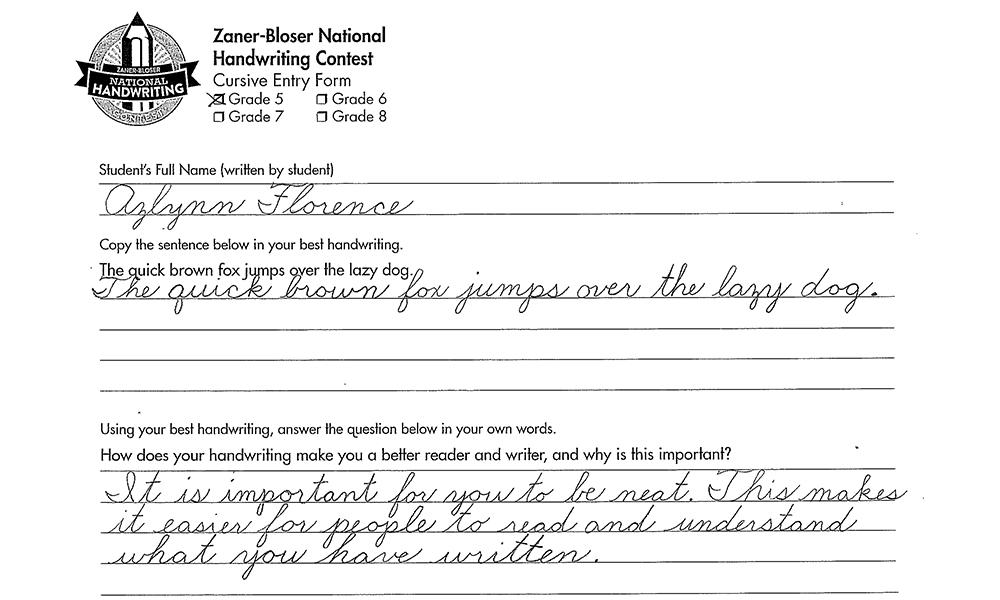 ZANER-BLOSER
NATIONAL
HANDWRITING
CONTEST
Zaner-Bloser National
Handwriting Contest
Cursive Entry Form
Grade 5 Grade 6
Grade 7 Grade 8
Student's Full Name (written by student)
Azlynn Florence
Copy the sentence below in your best handwriting.
The quick brown fox jumps over the lazy dog.
The quick brown fox jumps over the lazy dog.
Using your best handwriting, answer the question below in your own words.
How does your handwriting make you a better reader and writer, and why is this important?
It is important for you to be neat. This makes
it easier for people to read and understand
what you have written.